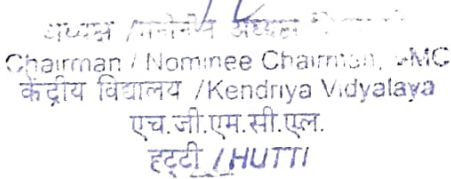 अध्यक्ष /मनोनीत अध्यक्ष
Chairman / Nominee Chairman, VMC
केंद्रीय विद्यालय /Kendriya Vidyalaya
एच.जी.एम.सी.एल.
हट्टी / HUTTI